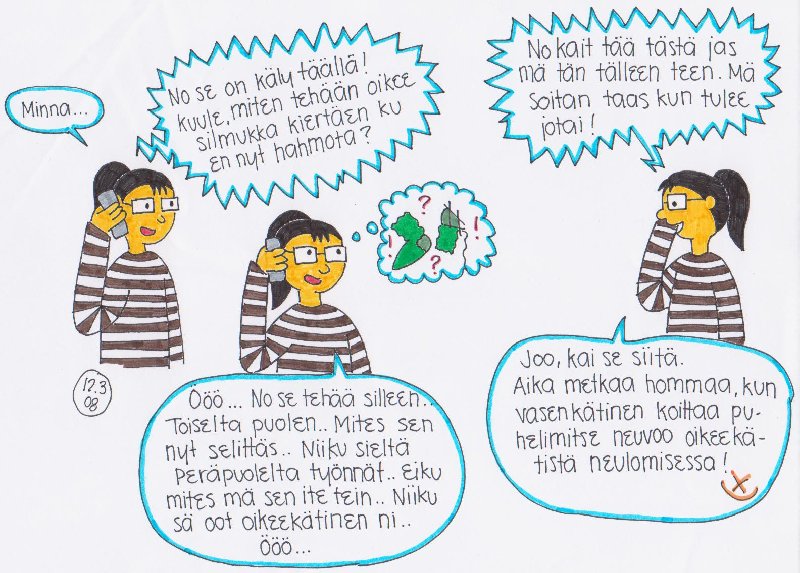 Minna...
No se on käly täällä!
Kuule, miten tehään oikee
silmukka kiertäen ku
en nyt hahmota?
12.3
08
? ! ? !
Ööö... No se tehää silleen..
Toiselta puolen.. Mites sen
nyt selittäs.. Niiku sieltä
peräpuolelta työnnät.. Eiku
mites mä sen ite tein.. Niiku
sä oot oikeekätinen ni..
Ööö...
No kait tää tästä jas
mä tän tälleen teen. Mä
soitan taas kun tulee
jotai!
Joo, kai se siitä.
Aika metkaa hommaa, kun
vasenkätinen koittaa pu-
helimitse neuvoo oikeekä-
tistä neulomisessa!